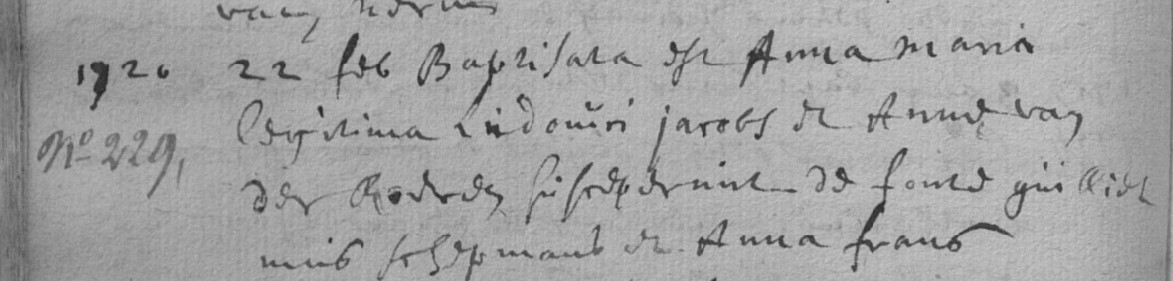 1720 22 feb Baptisata est Anna maria
N° 229, legitima Ludovici jacobs et Annæ van
der susceperunt de fonte guilliel
mus schepmans et Anna frans